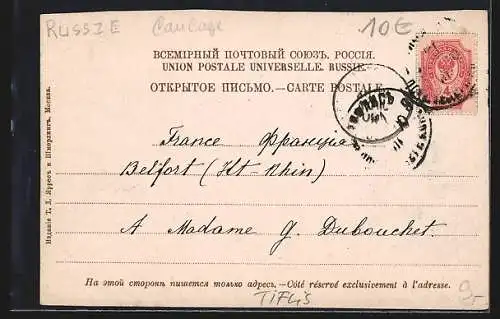 RUSSIE Caucase 10€
ВСЕМІРНЫЙ ПОЧТОВЫЙ СОЮЗЪ. РОССІЯ.
UNION POSTALE UNIVERSELLE. RUSSIE.
ОТКРЫТОЕ ПИСЬМО.—CARTE POSTALE.
France Франція
Belfort (Ht-Rhin)
A Madame G. Dubouchet.
На этой сторонѣ пишется только адресъ.—Côté réservé exclusivement à l'adresse.
TIFLIS
Изданіе Т. Д. Яуровъ и Шмерлингъ, Москва.